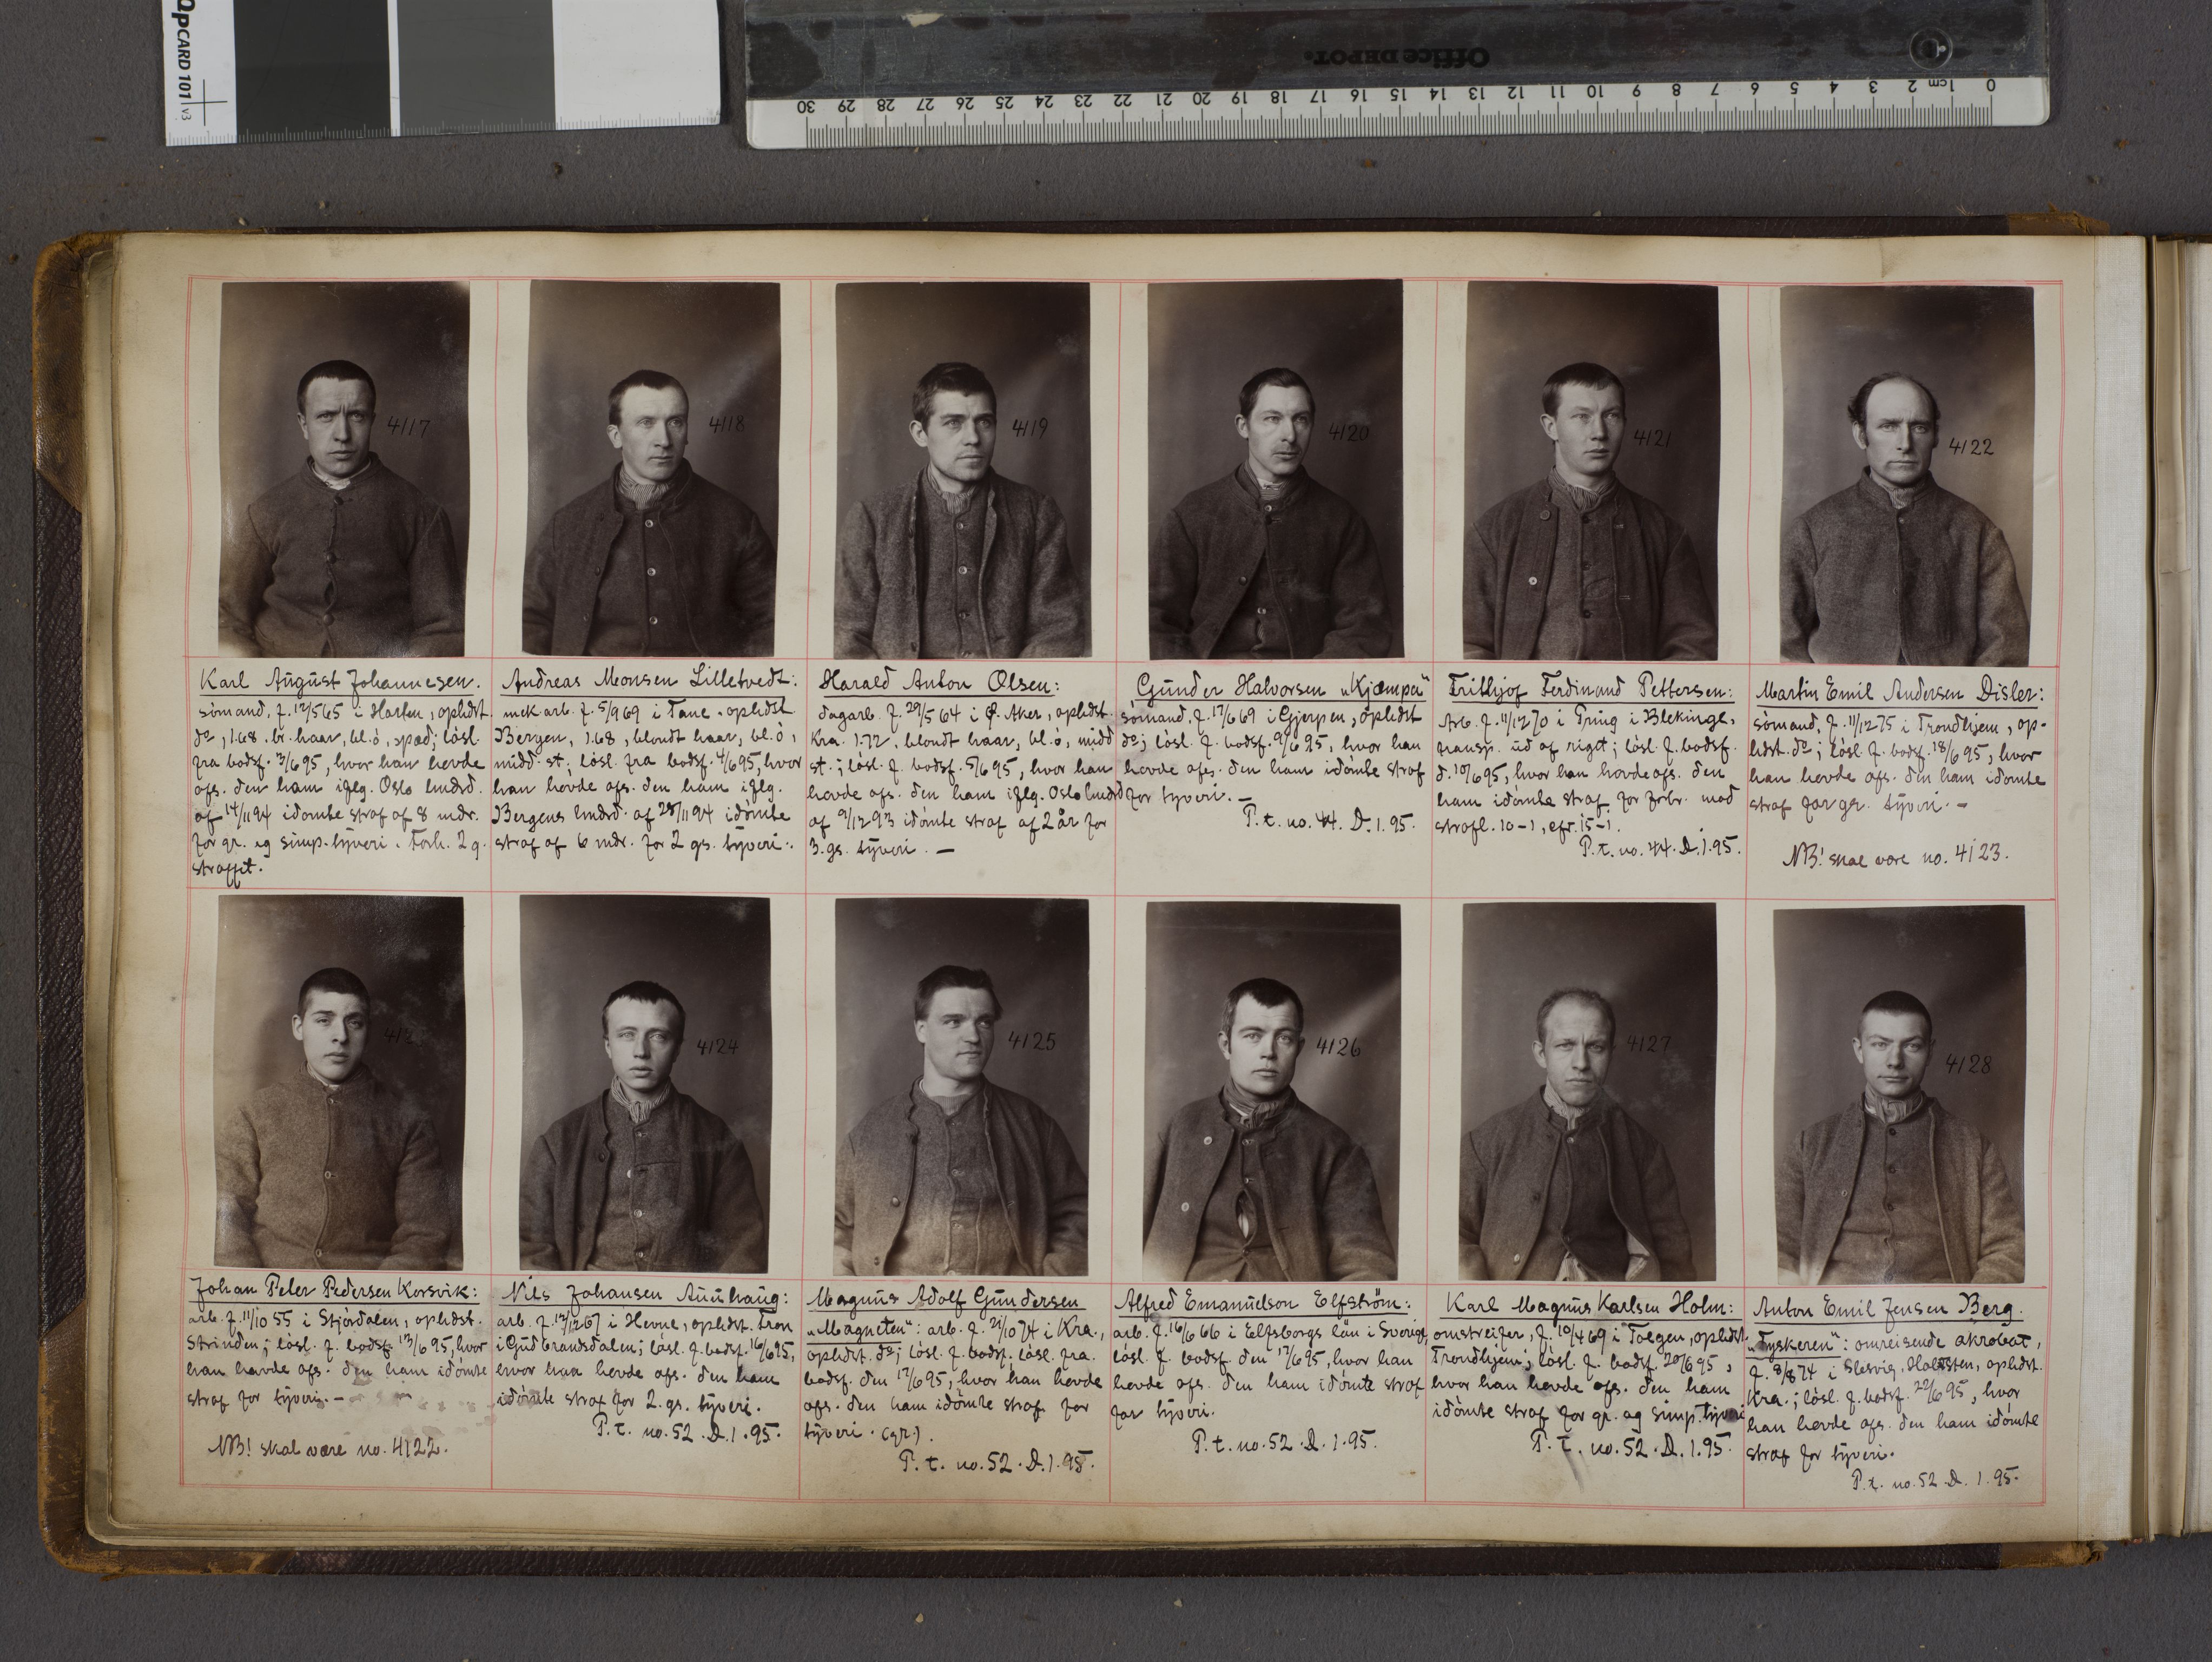 QPCARD 101 v3
Office DEPOT
0 1cm 2 3 4 5 6 7 8 9 10 11 12 13 14 15 16 17 18 19 20 21 22 23 24 25 26 27 28 29 30
4117
4118
4119
4120
4121
4122
Karl August Johannesen.
sömand, f. 12/5 65 i Horten, opdrst.
do, 1.68. br. haar, bl. ö, spæd; lösl.
fra bodsf. 3/6 95, hvor han hevde
afs. den ham iflg. Oslo lmdrd.
af 14/11 94 idömte straf af 8 mdr.
for gr. og simp. tyveri. Forh. 2 g.
straffet.
Andreas Monsen Lilletvedt:
mek. arb. f. 5/9 69 i Fane. opdrst.
Bergen, 1.68, blondt haar, bl. ö,
midd. st; lösl. fra bodsf. 4/6 95, hvor
han hevde afs. den ham iflg.
Bergens lmdrd. af 28/11 94 idömte
straf af 6 mdr. for 2 gs. tyveri.
Harald Anton Olsen:
dagarb. f. 29/5 64 i Ø. Aker, opdrst.
Kra. 1.72, blondt haar, bl. ö, midd
st.; lösl. f. bodsf. 5/6 95, hvor han
hevde afs. den ham iflg. Oslo lmdrd
af 9/12 93 idömte straf af 2 år for
3. gs. tyveri. —
Gunder Halvorsen „Kjæmpa"
sömand, f. 17/6 69 i Gjerpen, opdrst
do; lösl. f. bodsf. 9/6 95, hvor han
hevde afs. den ham idömte straf
for tyveri. —
P. t. no. 44. D. 1. 95.
Frithjof Ferdinand Pettersen:
Arb. f. 11/12 70 i Pring i Blekinge,
transp. ud af riget; lösl. f. bodsf.
d. 10/6 95, hvor han hevde afs. den
ham idömte straf for forbr. mod
strafl. 10-1, cfr. 15-1.
P. t. no. 44. D. 1. 95.
Martin Emil Andersen Disler:
sömand, f. 11/12 75 i Trondhjem, op-
drst. do; lösl. f. bodsf. 18/6 95, hvor
han hevde afs. den ham idömte
straf for gr. tyveri. —
NB! skal være no. 4123.
4124
4125
4126
4127
4128
Johan Peter Pedersen Korsvik:
arb. f. 11/10 55 i Stjördalen, opdrst.
Strinden; lösl. f. bodsf. 13/6 95, hvor
han havde afs. den ham idömte
straf for tyveri. —
NB! skal være no. 4122.
Nils Johansen Aunhaug:
arb. f. 12/12 67 i Hevne, opdrst. Fron
i Gudbrandsdalen; lösl. f. bodsf. 16/6 95,
hvor han hevde afs. den ham
idömte straf for 2. gs. tyveri.
P. t. no. 52. D. 1. 95.
Magnus Adolf Gundersen
„Magneten": arb. f. 21/10 74 i Kra.,
opdrst. do; lösl. f. bodsf. lösl. fra.
bodsf. den 17/6 95, hvor han hevde
afs. den ham idömte straf for
tyveri. (gr.).
P. t. no. 52. D. 1. 95.
Alfred Emanuelson Elfström:
arb. f. 16/6 66 i Elfsborgs län i Sverige,
lösl. f. bodsf. den 17/6 95, hvor han
hevde afs. den ham idömte straf
for tyveri.
P. t. no. 52. D. 1. 95.
Karl Magnus Karlsen Holm:
omstreifer, f. 10/4 69 i Tolgen, opdrst.
Trondhjem; lösl. f. bodsf. 20/6 95,
hvor han hevde afs. den ham
idömte straf for gr. og simp. tyveri
P. t. no. 52. D. 1. 95.
Anton Emil Jensen Berg.
„Tyskeren": omreisende akrobat,
f. 8/8 74 i Slesvig-Holsten, opdrst.
Kra.; lösl. f. bodsf. 22/6 95, hvor
han hevde afs. den ham idömte
straf for tyveri.
P. t. no. 52. D. 1. 95.